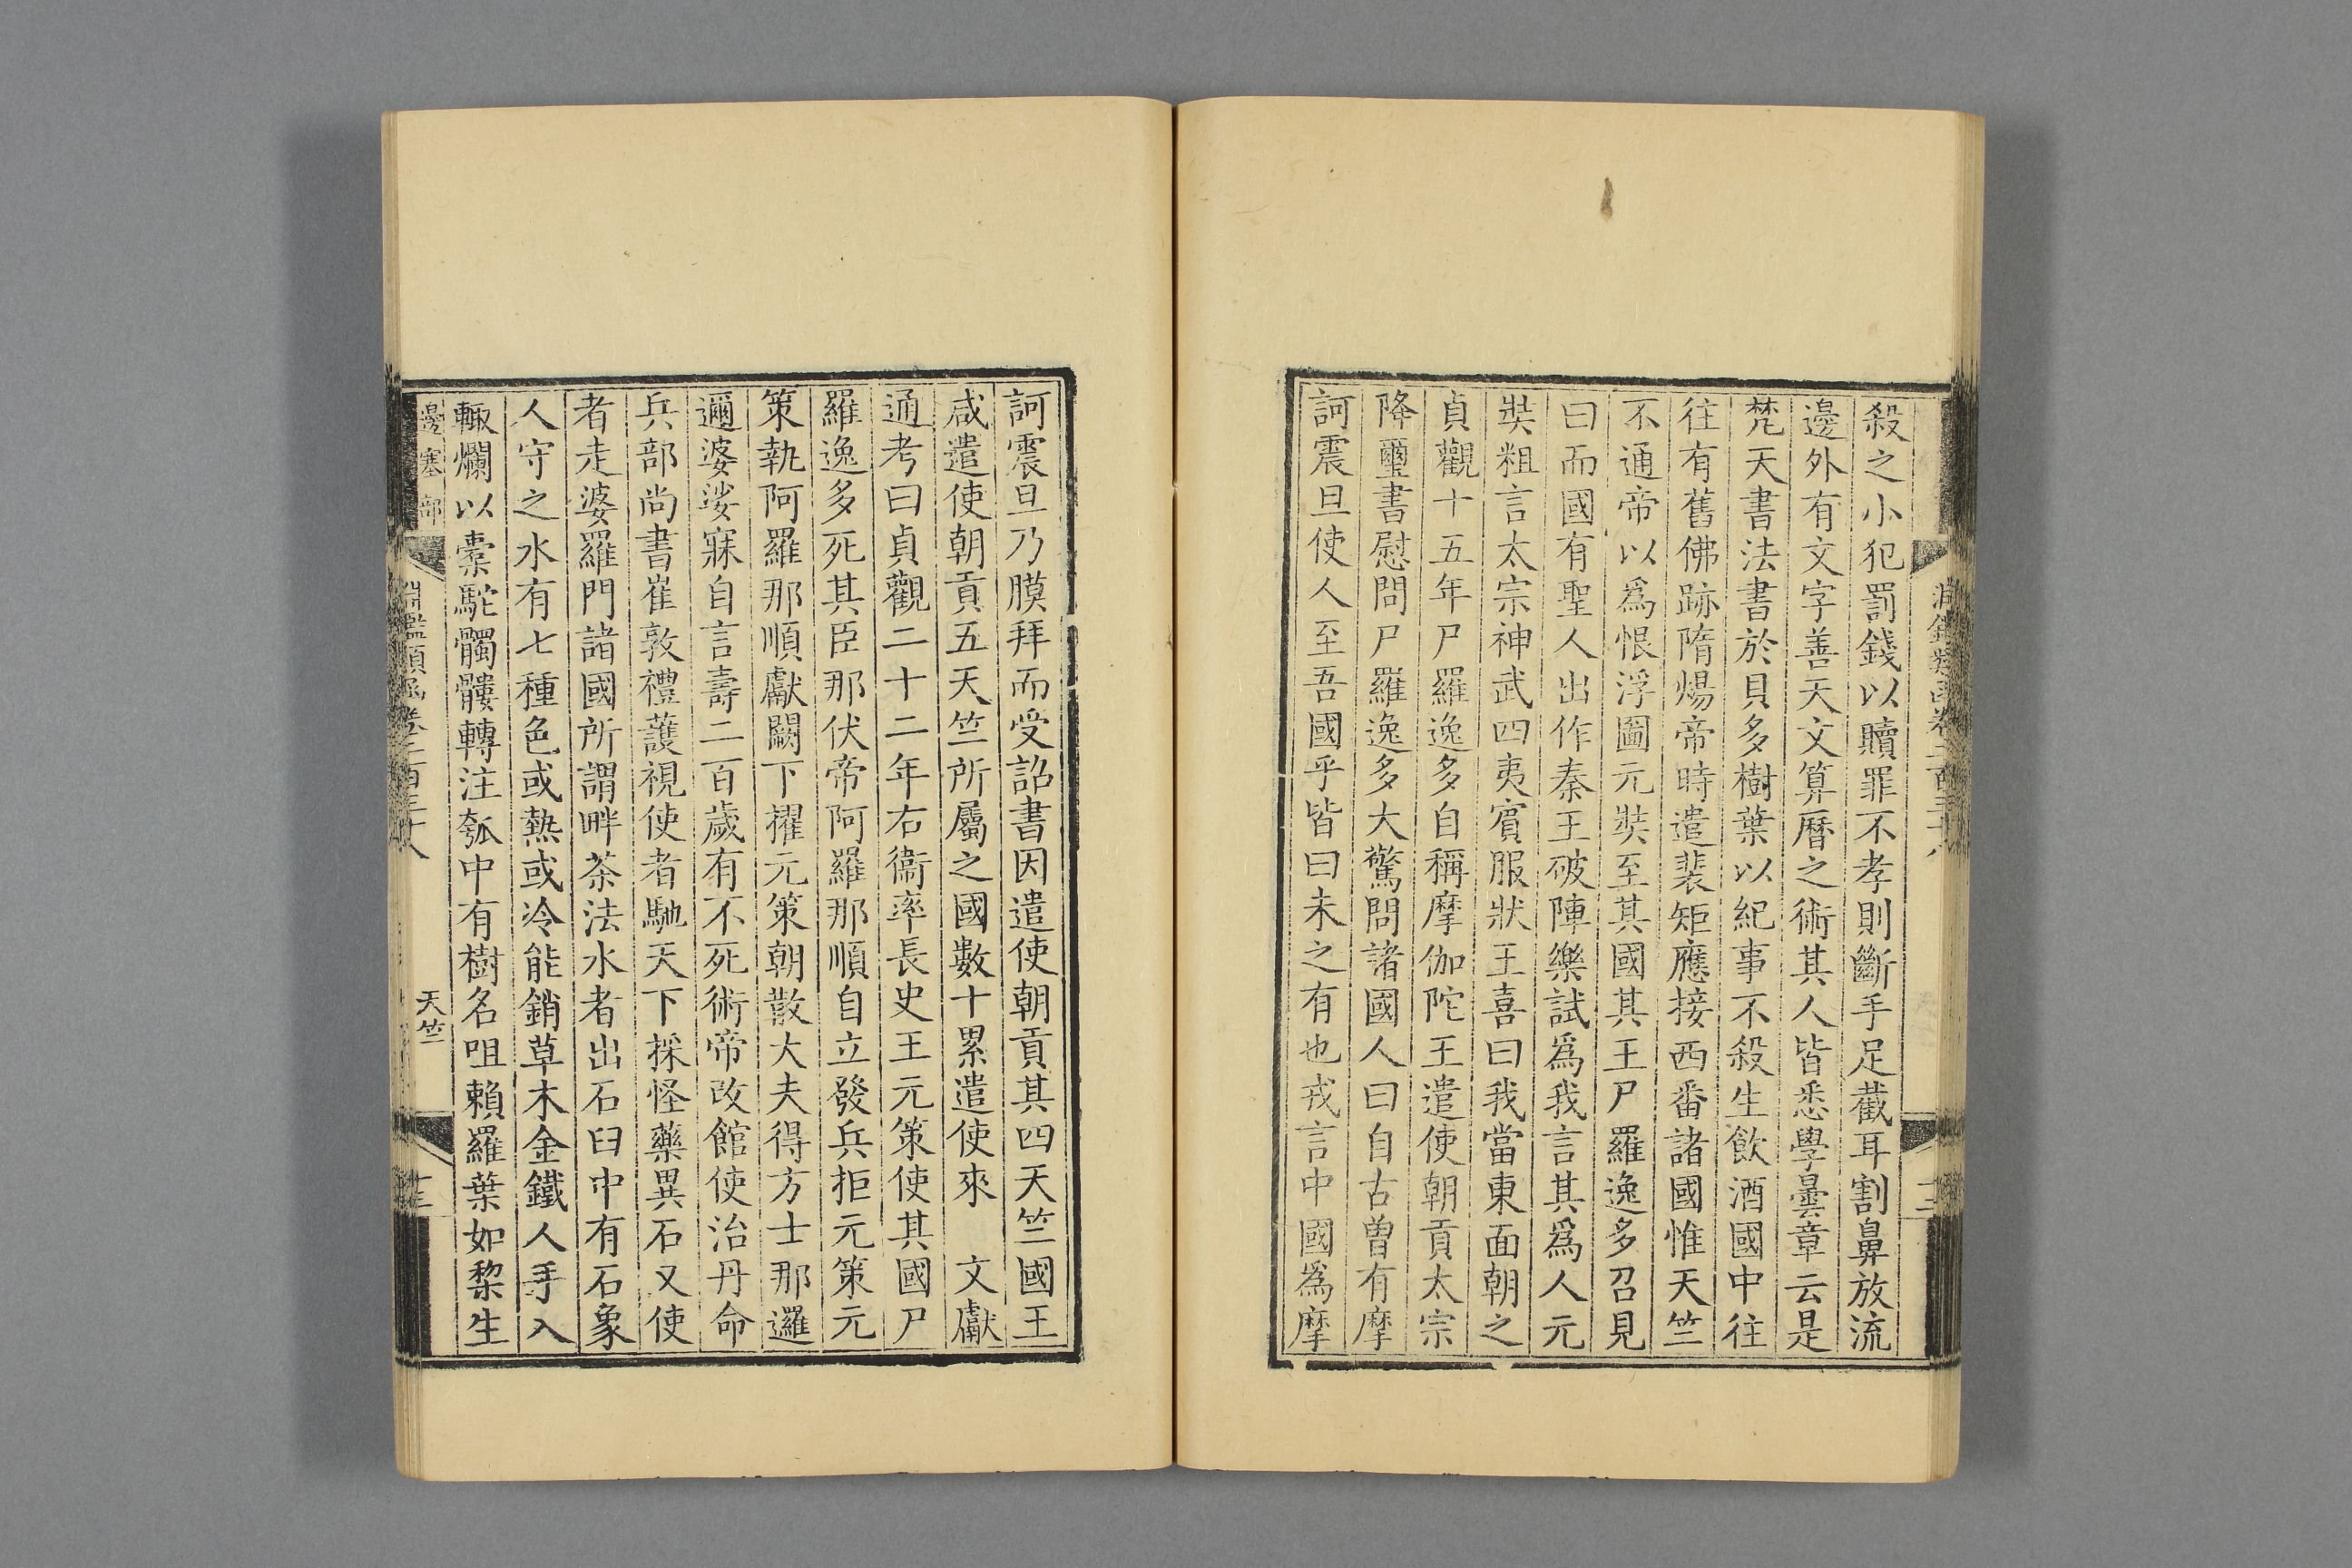 殺之小犯罰錢以贖罪不孝則斷手足截耳割鼻放流
邊外有文字善天文算曆之術其人皆悉學曇章云是
梵天書法書於貝多樹葉以紀事不殺生飲酒國中往
往有舊佛跡隋煬帝時遣裴矩應接西番諸國惟天竺
不通帝以爲恨浮圖元奘至其國其王尸羅逸多召見
曰而國有聖人出作秦王破陣樂試爲我言其爲人元
奘粗言太宗神武四夷賓服狀王喜曰我當東面朝之
貞觀十五年尸羅逸多自稱摩伽陀王遣使朝貢太宗
降璽書慰問尸羅逸多大驚問諸國人曰自古曾有摩
訶震旦使人至吾國乎皆曰未之有也戎言中國爲摩
訶震旦乃膜拜而受詔書因遣使朝貢其四天竺國王
咸遣使朝貢五天竺所屬之國數十累遣使來 文獻
通考曰貞觀二十二年右衞率長史王元策使其國尸
羅逸多死其臣那伏帝阿羅那順自立發兵拒元策元
策執阿羅那順獻闕下擢元策朝散大夫得方士那邏
邇婆娑寐自言壽二百歲有不死術帝改館使治丹命
兵部尚書崔敦禮護視使者馳天下採怪藥異石又使
者走婆羅門諸國所謂畔茶法水者出石臼中有石象
人守之水有七種色或熱或冷能銷草木金鐵人手入
輙爛以橐駝髑髏轉注瓠中有樹名咀賴羅葉如棃生
邊塞部
淵鑑類函卷二百三十八
天竺
十三